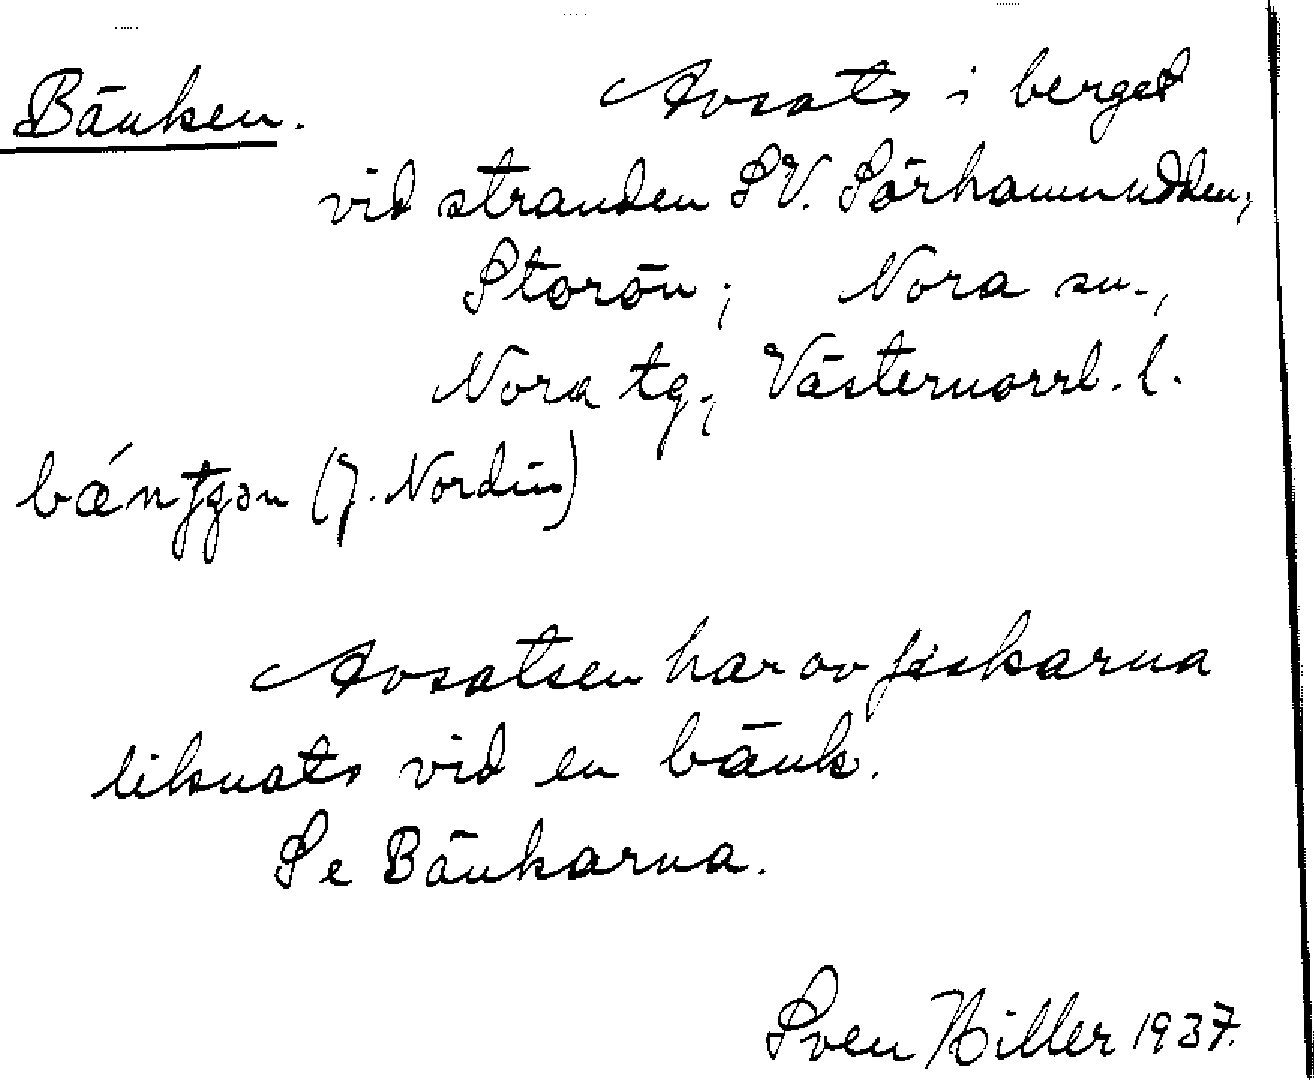 Bänken. Avsats i berget
vid stranden SV. Sörhamnudden,
Storön; Nora sn.,
Nora tg., Västernorrl. l.
(J. Nordin)
Avsatsen har av fiskarna
liknats vid en bänk.
Se Bänkarna.
Sven Hiller 1937.